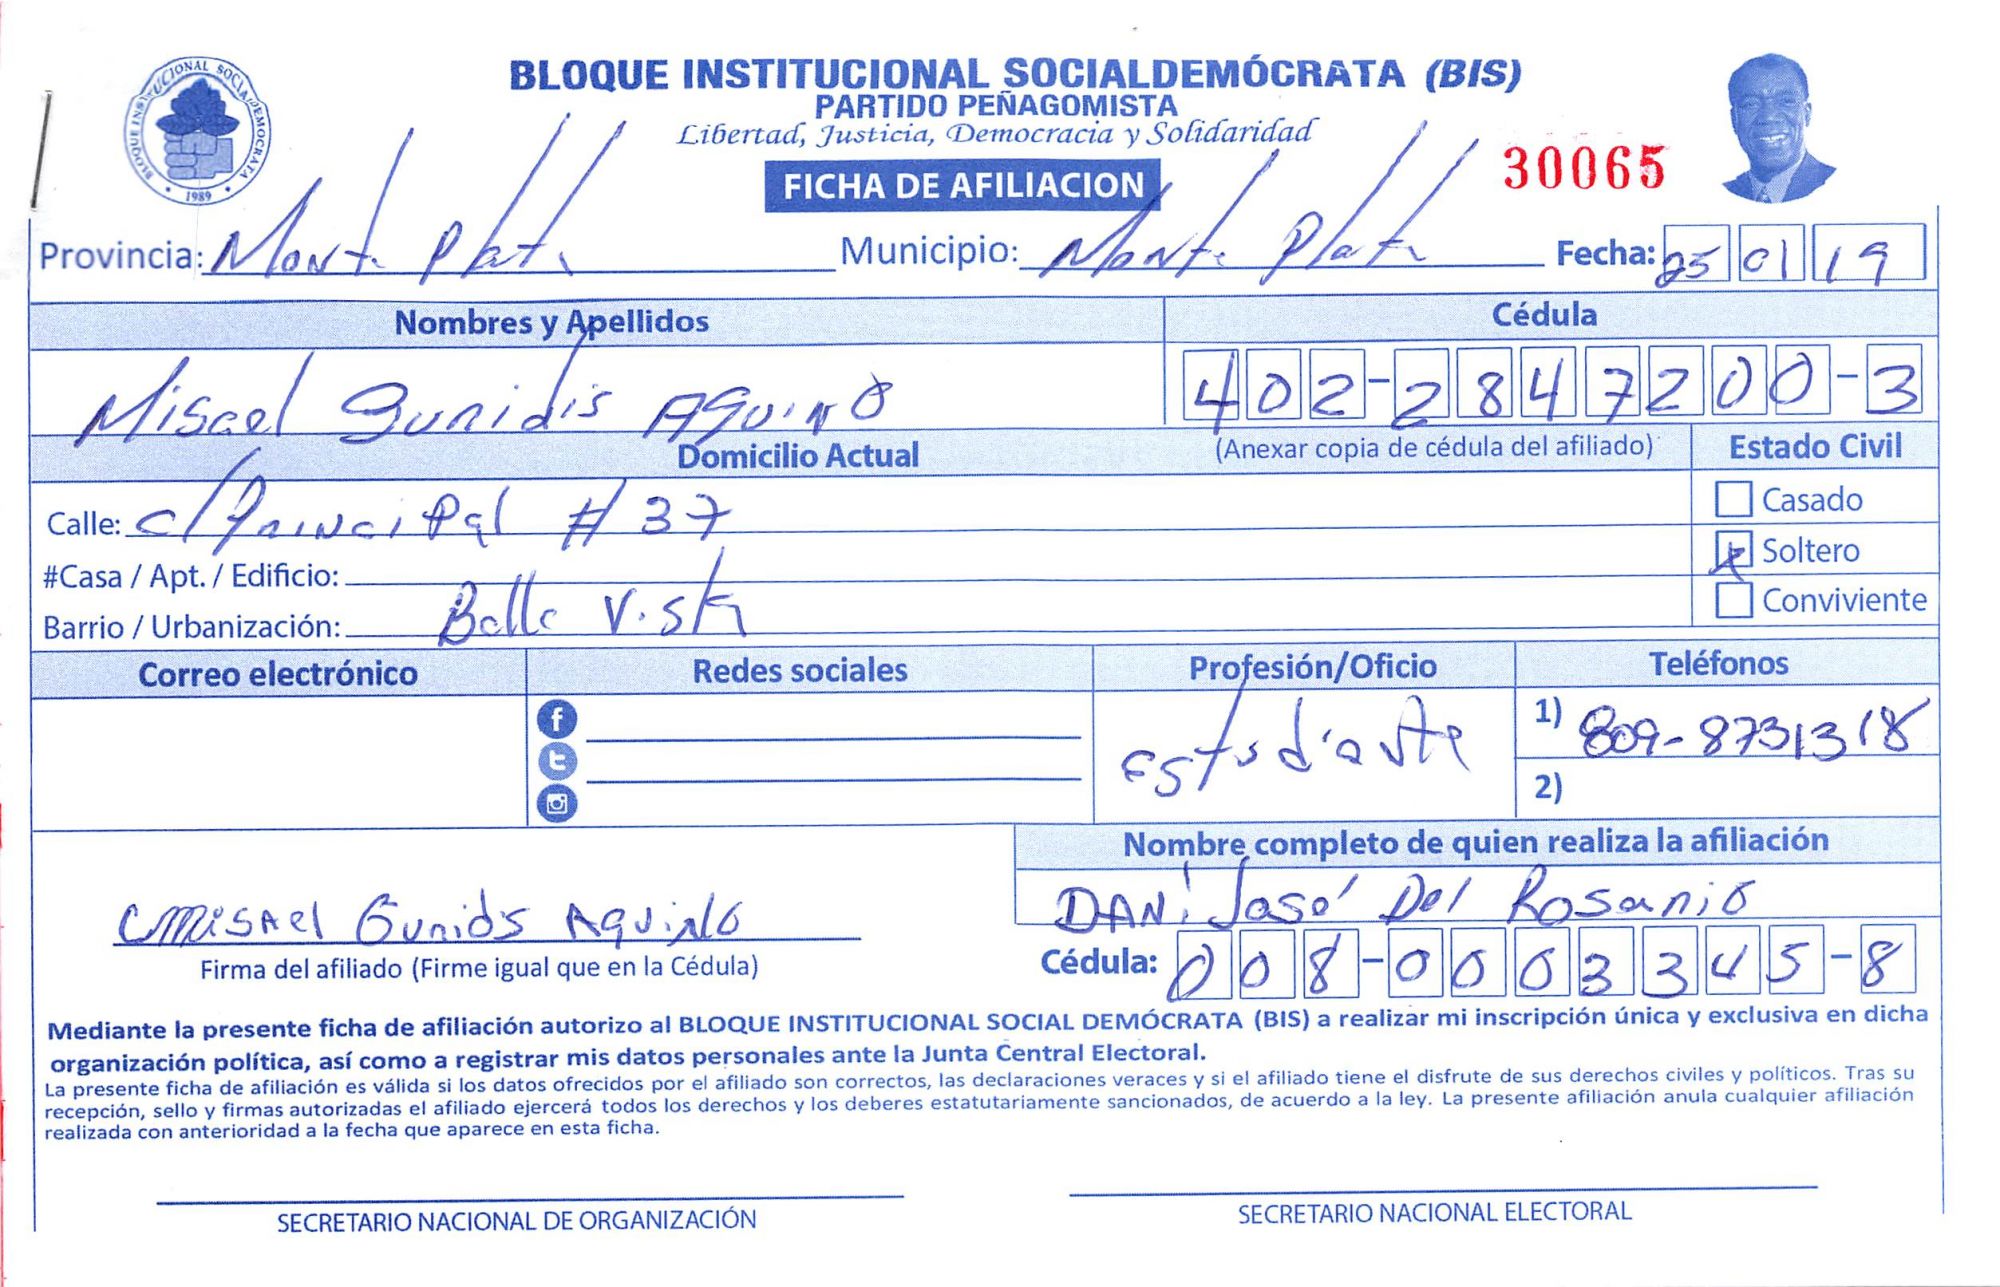 BLOQUE INSTITUCIONAL SOCIALDEMÓCRATA (BIS)
PARTIDO PEÑAGOMISTA
Libertad, Justicia, Democracia y Solidaridad
BLOQUE INSTITUCIONAL SOCIALDEMOCRATA
1989
FICHA DE AFILIACION
30065
Provincia: Monte Plata Municipio: Monte Plata Fecha: 25 01 19
Nombres y Apellidos Cédula
Misael Gunidis Aquino 402-2847200-3
Domicilio Actual (Anexar copia de cédula del afiliado) Estado Civil
Calle: c/Principal # 37 Casado
#Casa / Apt. / Edificio: x Soltero
Barrio / Urbanización: Bella Vista Conviviente
Correo electrónico Redes sociales Profesión/Oficio Teléfonos
Estudiante 1) 809-8731318
2)
Nombre completo de quien realiza la afiliación
Misael Gunids Aquino DANi José Del Rosario
Firma del afiliado (Firme igual que en la Cédula) Cédula: 008-0003345-8
Mediante la presente ficha de afiliación autorizo al BLOQUE INSTITUCIONAL SOCIAL DEMÓCRATA (BIS) a realizar mi inscripción única y exclusiva en dicha
organización política, así como a registrar mis datos personales ante la Junta Central Electoral.
La presente ficha de afiliación es válida si los datos ofrecidos por el afiliado son correctos, las declaraciones veraces y si el afiliado tiene el disfrute de sus derechos civiles y políticos. Tras su
recepción, sello y firmas autorizadas el afiliado ejercerá todos los derechos y los deberes estatutariamente sancionados, de acuerdo a la ley. La presente afiliación anula cualquier afiliación
realizada con anterioridad a la fecha que aparece en esta ficha.
SECRETARIO NACIONAL DE ORGANIZACIÓN SECRETARIO NACIONAL ELECTORAL